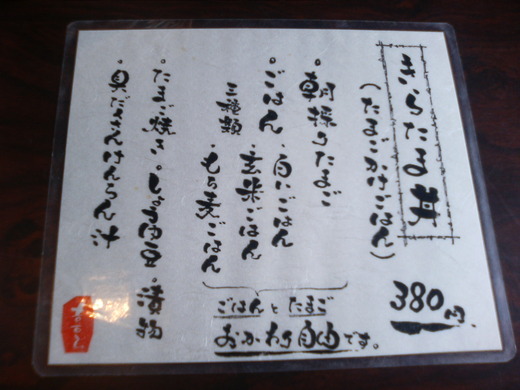 きらたま丼
(たまごかけごはん)
380円
・朝採りたまご
・ごはん 三種類
・白いごはん
・玄米ごはん
・もち麦ごはん
ごはんとたまご
おかわり自由です。
・たまご焼き・しょう油豆・漬物
・具だくさんけんちん汁